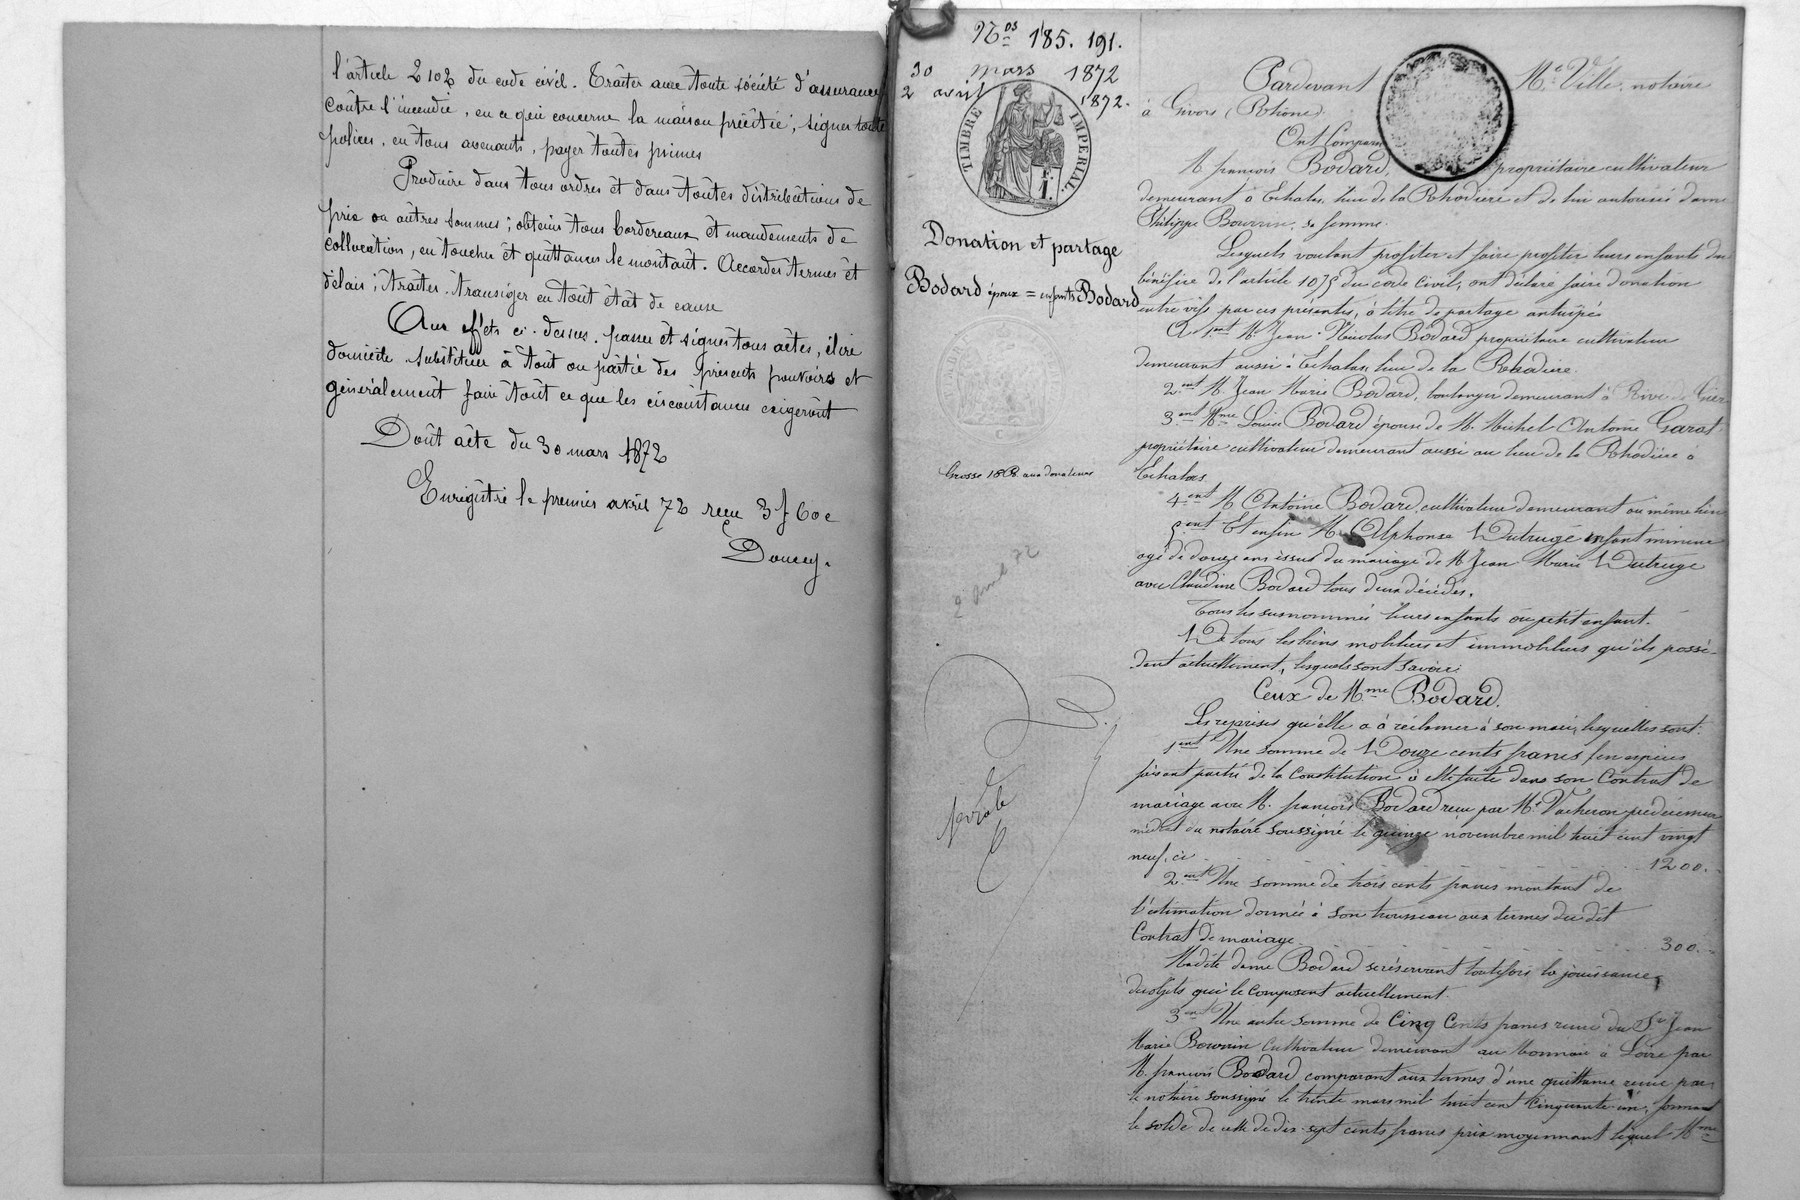 l'article 2102 du code civil. Traiter avec toute société d'assurance
contre l'incendie, en ce qui concerne la maison précitée; signer toute
polices, en tous avenants, payer toutes primes
Produire dans tous ordres et dans toutes distributions de
prix ou autres sommes; obtenir tous bordereaux et mandements de
collocation, en toucher et quittancer le montant. Accorder termes et
délais; traiter, transiger en tout état de cause
Aux effets ci-dessus, passer et signer tous actes, élire
domicile substituer à tout ou partie des présents pouvoirs et
généralement faire tout ce que les circonstances exigeront
Dont acte du 30 mars 1872
Enregistré le premier avril 72 reçu 3 f 60 c
Doucey.
Nos 185. 191.
30 mars 1872
2 avril 1872.
TIMBRE IMPERIAL
1 F.
Donation et partage
Bodard époux = enfants Bodard
Grosse 18 aux donateurs
2 avril 72
Pardevant Me Ville, notaire
à Givors (Rhône)
Ont Comparu
M. françois Bodard, propriétaire cultivateur
demeurant à Echalas, lieu de la Rhodière et de lui autorisée dame
Philippe Bourrin, sa femme.
Lesquels voulant profiter et faire profiter leurs enfants du
bénéfice de l'article 1075 du code civil, ont déclaré faire donation
entre vifs par ces présentes, à titre de partage anticipé
A 1ent M. Jean-Nicolas Bodard propriétaire cultivateur
demeurant aussi à Echalas, lieu de la Rhodière.
2ent M Jean Marie Bodard, boulanger demeurant à Rive de Gier
3ent Mme Louise Bodard épouse de M. Michel Antoine Garat
propriétaire cultivateur demeurant aussi au lieu de la Rhodière à
Echalas
4ent M Antoine Bodard, cultivateur demeurant au même lieu
5ent Et enfin M. Alphonse Dutruge enfant mineur
agé de douze ans issus du mariage de M Jean Marie Dutruge
avec Claudine Bodard tous deux décédés,
Tous les susnommés leurs enfants ou petit enfant.
De tous les biens mobiliers et immobiliers qu'ils possè-
dent actuellement, lesquels sont savoir:
Ceux de Mme Bodard.
Les reprises qu'elle a à réclamer à son mari, lesquelles sont:
1ent Une somme de Douze cents francs en espèces
faisant partie de la Constitution à elle faite dans son Contrat de
mariage avec M. françois Bodard reçu par Me Vacheron prédécesseur
médiat du notaire soussigné le quinze novembre mil huit cent vingt
neuf, ci 1200.
2ent Une somme de trois cents francs montant de
l'estimation donnée à son trousseau aux termes du dit
Contrat de mariage 300.
Ladite dame Bodard se réservant toutefois la jouissance
des objets qui le composent actuellement.
3ent Une autre somme de Cinq Cents francs reçue du Sr Jean
Marie Bourrin Cultivateur demeurant au à Loire par
M. francois Bodard comparant aux termes d'une quittance reçue par
le notaire soussigné le trente mars mil huit cent cinquante-un, formant
le solde de celle de dix-sept cents francs prix moyennant lequel Mme